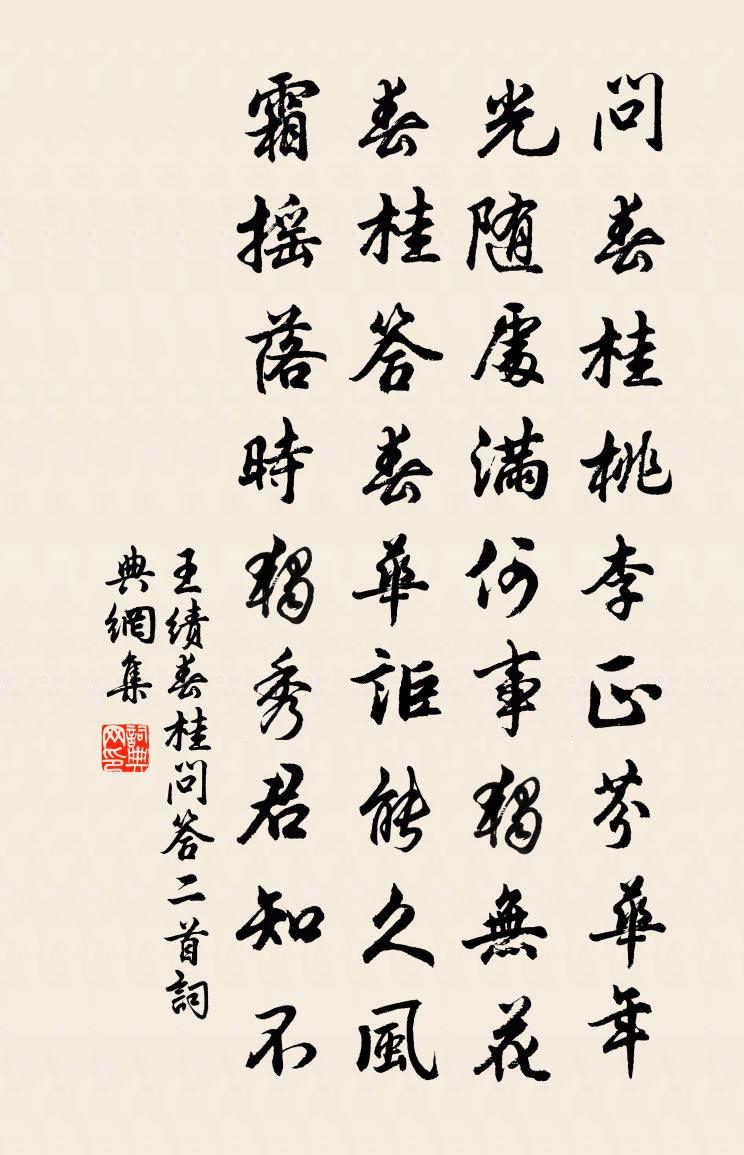 問春桂桃李正芬華年
光随處滿何事獨無花
春桂答春華詎能久風
霜摇落時獨秀君知不
王績春桂問答二首詞
典網集
詞典网印